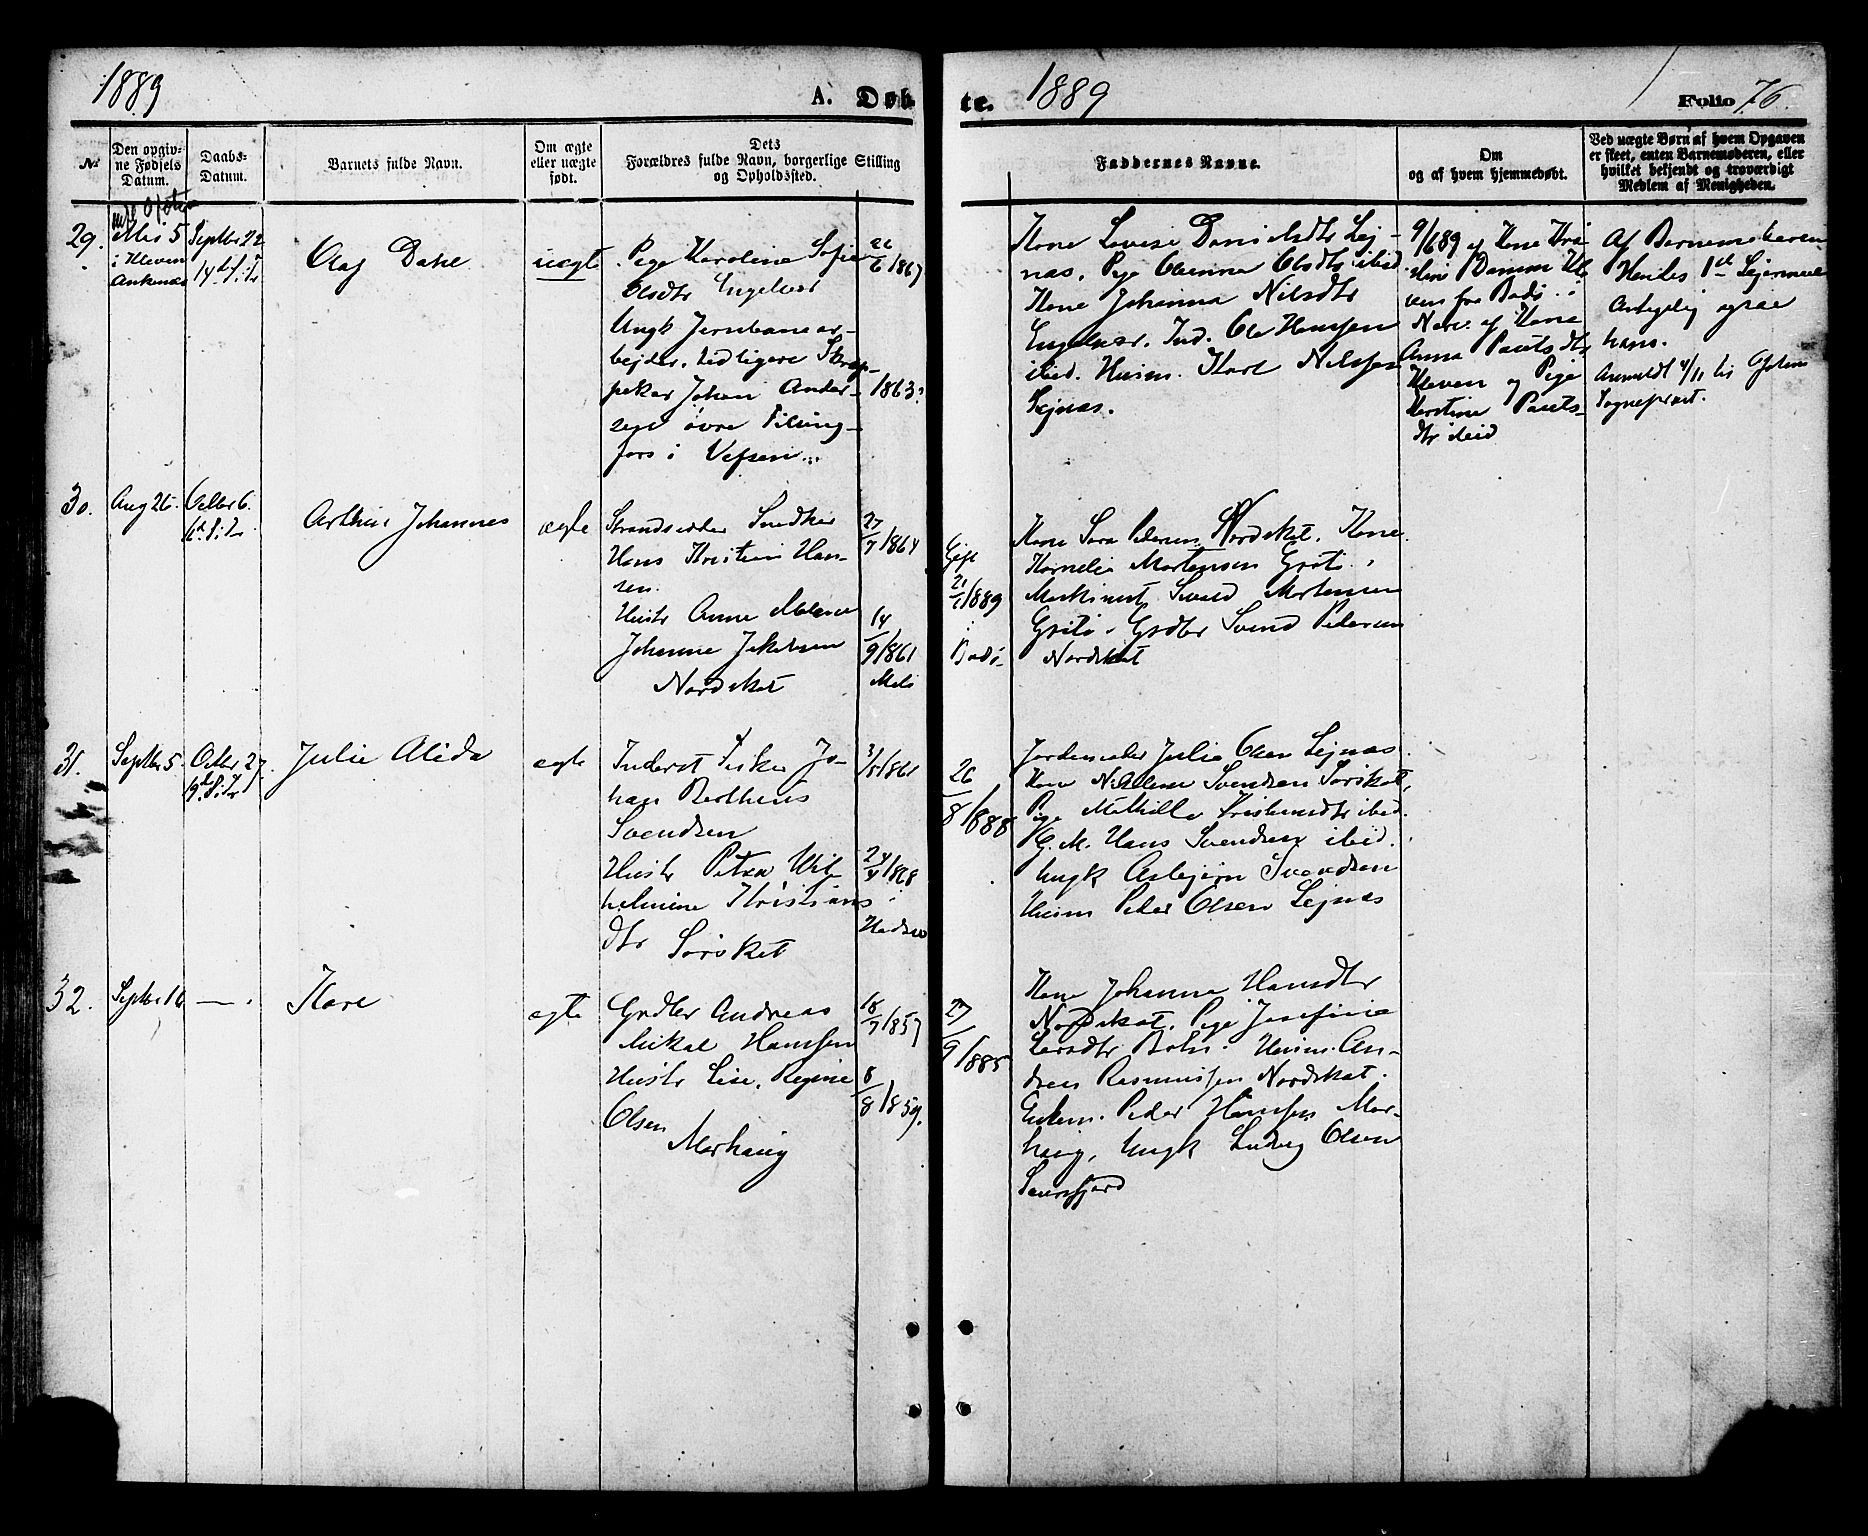 1889
A. Døb
te.
1889
Folio 76.
№
Den opgiv-
ne Fødsels
Datum.
Daabs-
Datum.
Barnets fulde Navn.
Om ægte
eller uægte
født.
Dets
Forældres fulde Navn, borgerlige Stilling
og Opholdssted.
Faddernes Navne.
Om
og af hvem hjemmedøbt.
Ved uægte Børn af hvem Opgaven
er skeet, enten Barnemoderen, eller
hvilket bekjendt og troværdigt
Medlem af Menigheden.
29.
Mai 5
i Kleven
Ankenæs
Septbr 22
14d S. i Tr
Olaf Dahl
uægte
Pige Karoline Sofie
Olsdtr Engelvær
Ungk Jernbanear-
bejder, tidligere Skrep-
pekar Johan Ander-
sen øvre
fors i Vefsen
26/6 1867
1863?
Kone Lovise Danielsdtr Lej-
nas. Pige Olsdtr ibid
Kone Johanna Nilsdtr
Engelvær. Ind. Ole Hansen
ibid. Husm. Karl Nilsen
Lejnas.
9/6 89 af Kone
Kle
ven fra Bodø
af Kone
Anna Paulsdtr
Kleven og Pige
Kerstine Pauls-
dtr ibid
Af Barnemoderen
Hendes 1ste Lejermaal
Antagelig ogsaa
hans.
Anmeldt 4/11 til Ofoten
Sogneprest.
30.
Aug 26
Octbr 6.
16d S. i Tr.
Arthur Johannes
ægte
Strandsidder Snedker
Hans Kristian Han-
sen.
Hustr Anne
Johanne Jakobsen
Nordskot
27/7 1864
14/9 1861
Melø
Gift
21/1 1889
i
Bodø
Kone Sara Pedersen Nordskot. Kone
Kornelia Mortensen Grøtø.
Maskinist Sivald Mortensen
Grøtø. Grdbr Svend Pedersen
Nordskot
31.
Septbr 5
Octbr 27.
19d S. i Tr
Julie Alida
ægte
Inderst Fisker Jo-
han Berthens
Svendsen
Hustr Petra Wil-
helmine Kristians
dtr Sørskot
3/5 1861
24/4 1868
Hadsel
26/8 1888
Jordemoder Julie Olsen Lejnas
Kone Svendsen Sørskot,
Pige Mathilde Kristiansdtr ibid.
G. M. Hans Svendsen ibid.
Ungk Asbjørn Svendsen
Husm Peder Olsen Lejnas
32.
Septbr 16
— .
Kare
ægte
Grdbr Andreas
Mikal Hansen
Hustr Lise Regine
Olsen
Morhaug
18/7 1857
8/8 1859.
27/9 1885
Kone Johanna Hansdtr
Nordskot. Pige Josefine
Larsdtr Husm. An-
dreas Rasmussen Nordskot.
Enkem. Peder Hansen Mor-
haug, Ungk Ludvig Olsen